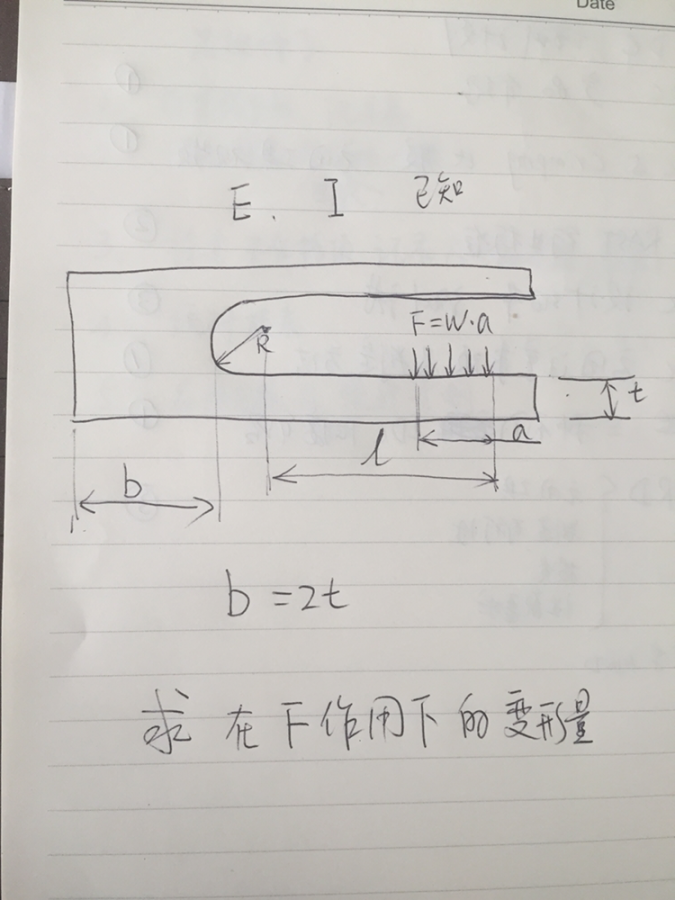 Date
E. I 已知
R
F=W·a
t
a
l
b
b=2t
求在F作用下的变形量